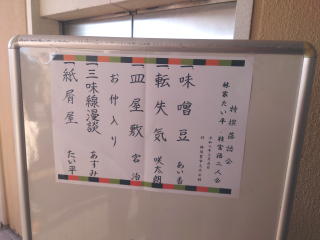 特撰落語会
林家たい平 柱宮治二人会
一味噌豆 あい香
一転失気 咲太朗
一皿屋敷 宮治
お仲入り
一三味線漫談 あずみ
一紙屑屋 たい平